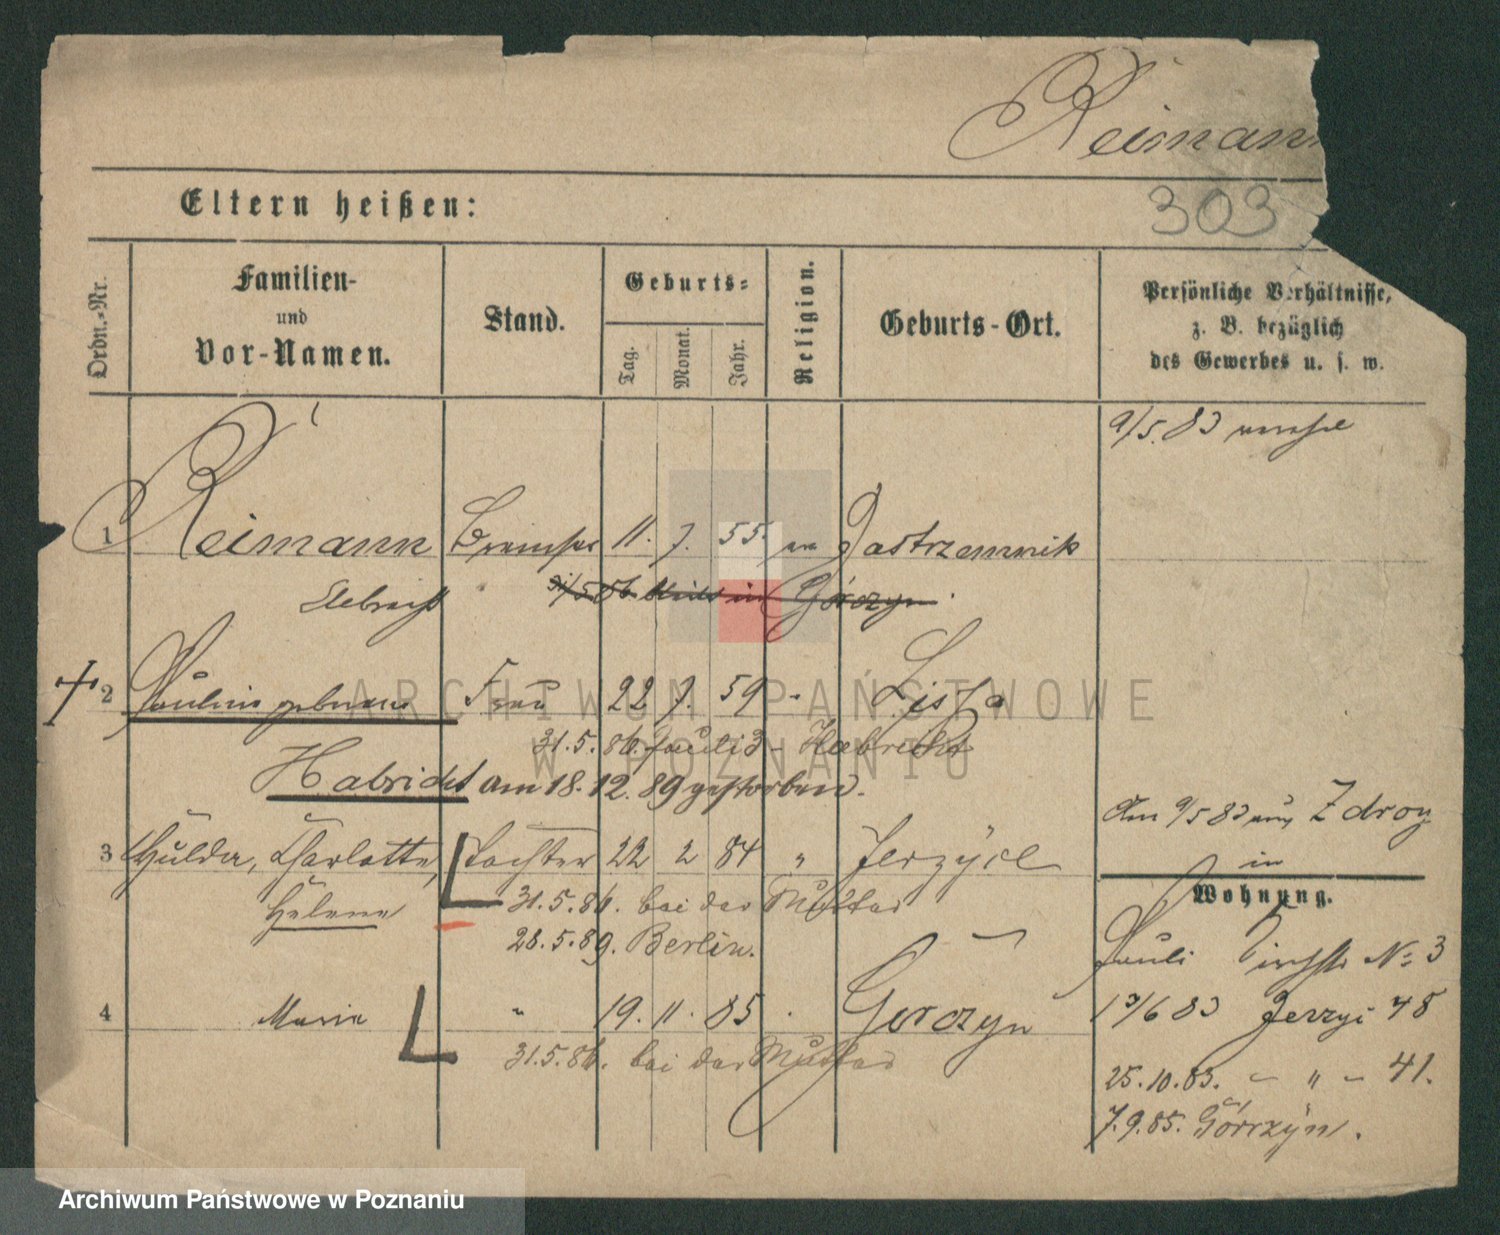 Reimann
303
Eltern heißen:
Ordn.-Nr.
Familien-
und
Vor-Namen.
Stand.
Geburts-
Tag.
Monat.
Jahr.
Religion.
Geburts-Ort.
Persönliche Verhältnisse,
z. B. bezüglich
des Gewerbes u. s. w.
9/5. 83
1 Reimann 11. 7. 55. Jastrzemnik
in Górczyn
2 Pauline geborene Frau 22 7. 59 " Lissa
31.5.86. Pauli 3 - Habricht
Habricht am 18.12.89 gestorben.
Am 9/5 83 aus Zdroy
in
3 Hulda, Charlotte, Tochter 22 2 84 " Jerzyce
Helene 31.5.86. bei der Mutter
28.5.89. Berlin.
Wohnung.
Pauli Kirchstr No 3
4 Maria " 19. 11. 85 Gorczyn
31.5.86. bei der Mutter
13/6 83 Jerzyc 48
25.10.83. - " - 41.
7.9.85. Górrzyn.
ARCHIWUM PAŃSTWOWE
W POZNANIU
Archiwum Państwowe w Poznaniu